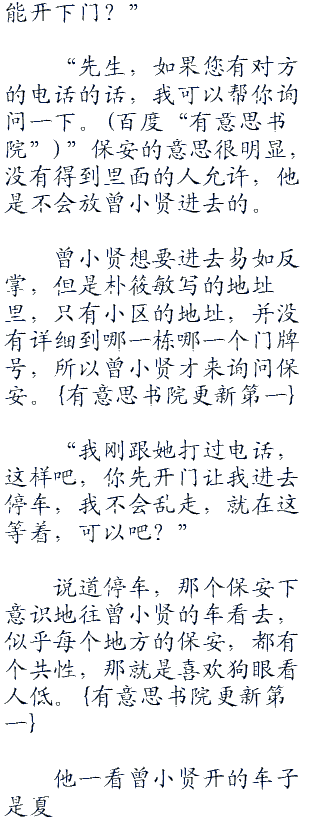 能开下门？”
“先生，如果您有对方
的电话的话，我可以帮你询
问一下。(百度“有意思书
院”)”保安的意思很明显，
没有得到里面的人允许，他
是不会放曾小贤进去的。
曾小贤想要进去易如反
掌，但是朴筱敏写的地址
里，只有小区的地址，并没
有详细到哪一栋哪一个门牌
号，所以曾小贤才来询问保
安。{有意思书院更新第一}
“我刚跟她打过电话，
这样吧，你先开门让我进去
停车，我不会乱走，就在这
等着，可以吧？”
说道停车，那个保安下
意识地往曾小贤的车看去，
似乎每个地方的保安，都有
个共性，那就是喜欢狗眼看
人低。{有意思书院更新第
一}
他一看曾小贤开的车子
是夏